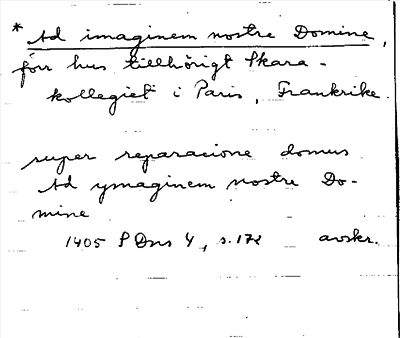 * Ad imaginem nostre Domine,
förr hus tillhörigt Skara-
kollegiet i Paris, Frankrike.
super reparacione domus
Ad ymaginem nostre Do-
mine
1405 P Dns 4, s. 172 avskr.